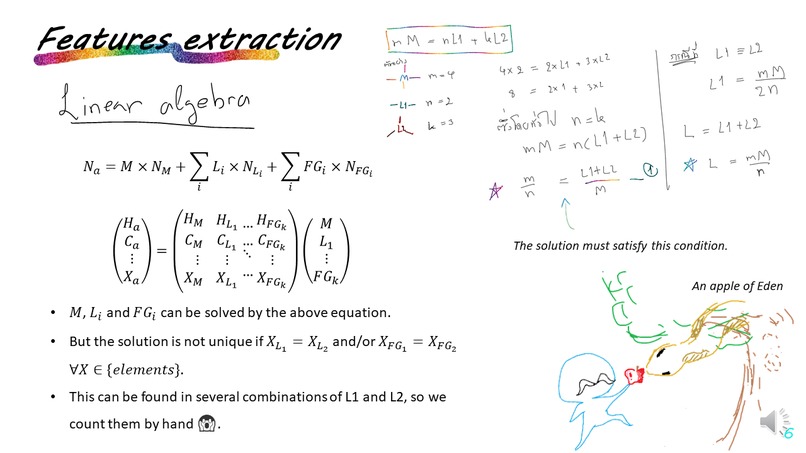 Features extraction
Linear algebra
N_a = M × N_M + ∑_i L_i × N_{L_i} + ∑_i FG_i × N_{FG_i}
(H_a C_a ⋮ X_a) = (H_M H_{L_1} … H_{FG_k} C_M C_{L_1} … C_{FG_k} ⋮ ⋮ ⋱ ⋮ X_M X_{L_1} … X_{FG_k}) (M L_1 ⋮ FG_k)
• M, L_i and FG_i can be solved by the above equation.
• But the solution is not unique if X_{L_1} = X_{L_2} and/or X_{FG_1} = X_{FG_2}
∀X ∈ {elements}.
• This can be found in several combinations of L1 and L2, so we
count them by hand 😱.
mM = nL1 + kL2
M m = 4
L1 n = 2
L2 k = 3
4×2 = 2×L1 + 3×L2
8 = 2×1 + 3×2
n = k
mM = n(L1 + L2)
m/n = (L1+L2)/M — ①
L1 ≡ L2
L1 = mM/2n
L = L1 + L2
L = mM/n
The solution must satisfy this condition.
An apple of Eden
6